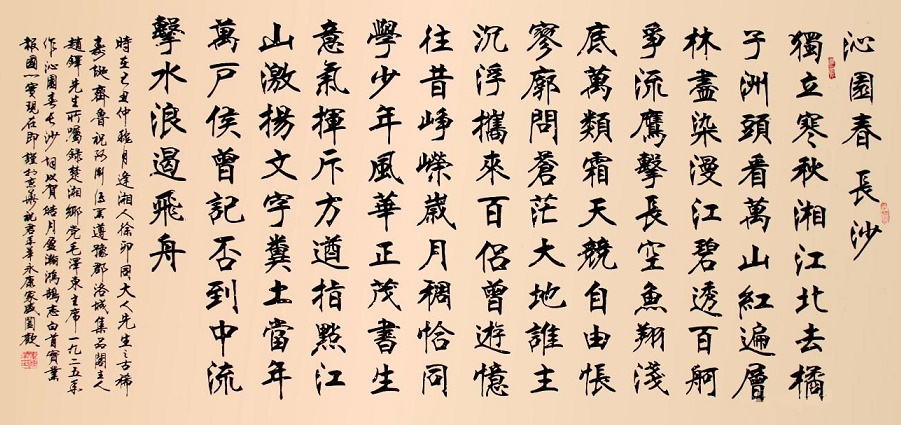 沁園春 長沙
獨立寒秋湘江北去橘
子洲頭看萬山紅遍層
林盡染漫江碧透百舸
爭流鷹擊長空魚翔淺
底萬類霜天競自由悵
寥廓問蒼茫大地誰主
沉浮攜來百侶曾遊憶
往昔崢嶸歲月稠恰同
學少年風華正茂書生
意氣揮斥方遒指點江
山激揚文字糞土當年
萬户侯曾記否到中流
擊水浪遏飛舟
時在己丑仲月逢湘人徐卯同大人先生之古稀
壽誕齊魯祝阿周遵豫郡洛城集品閣主人
趙鐸先生所囑錄楚湘鄉党毛澤東主席一九二五年
作沁園春長沙詞以賀皓月盈瀚鴻鵠志白首實業
報國一實現在即謹於京華祝君年華永康家盛闔歡